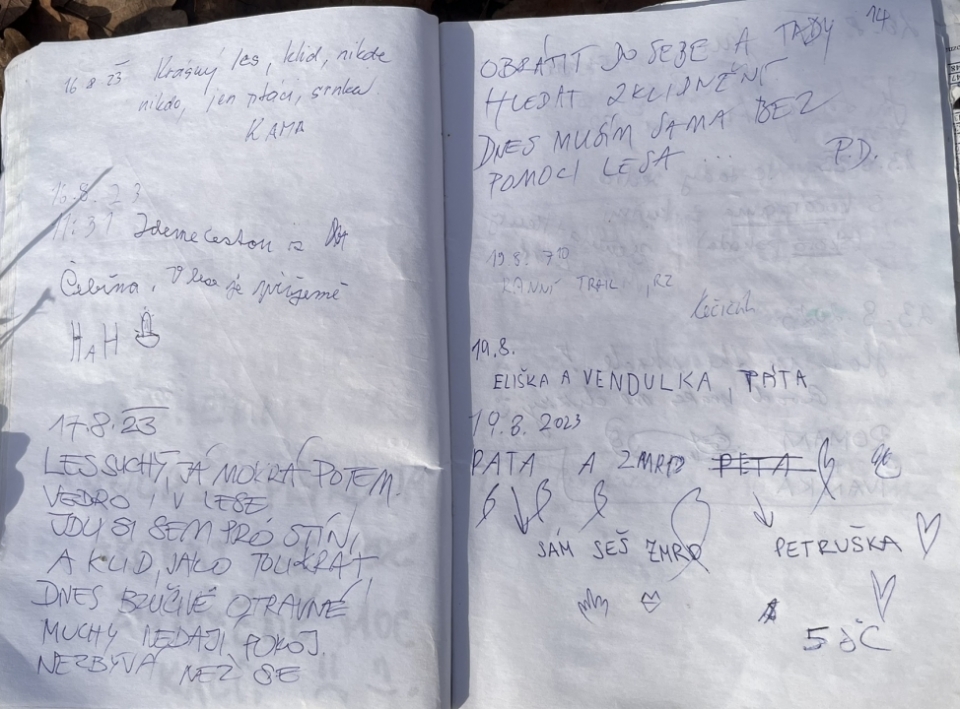 16 8 23 Krásný les, klid, nikde
nikdo, jen ptáci, srnka.
KAMA
16.8.23
11:31 Jdeme cestou iz
Čebína. V lese je příjemě
HAH
17.8.23
LES SUCHÝ, JÁ MOKRÁ POTEM.
VEDRO I V LESE
JDU SI SEM PRO STÍN,
A KLID, JAKO TOLIKRÁT
DNES BZUČIVÉ OTRAVNÉ
MUCHY NEDAJÍ POKOJ.
NEZBÝVÁ NEŽ SE
14.
OBRÁTIT DO SEBE A TADY
HLEDAT ZKLIDNĚNÍ
DNES MUSÍM SAMA BEZ
POMOCI LESA ... P.D.
19 8. 7
RANNÍ TRAIL, RZ
19.8.
ELIŠKA A VENDULKA, PÁTA
19.8.2023
PATA A ZMRD PÉTA
SÁM SEŠ ZMRD PETRUŠKA
5 JČ